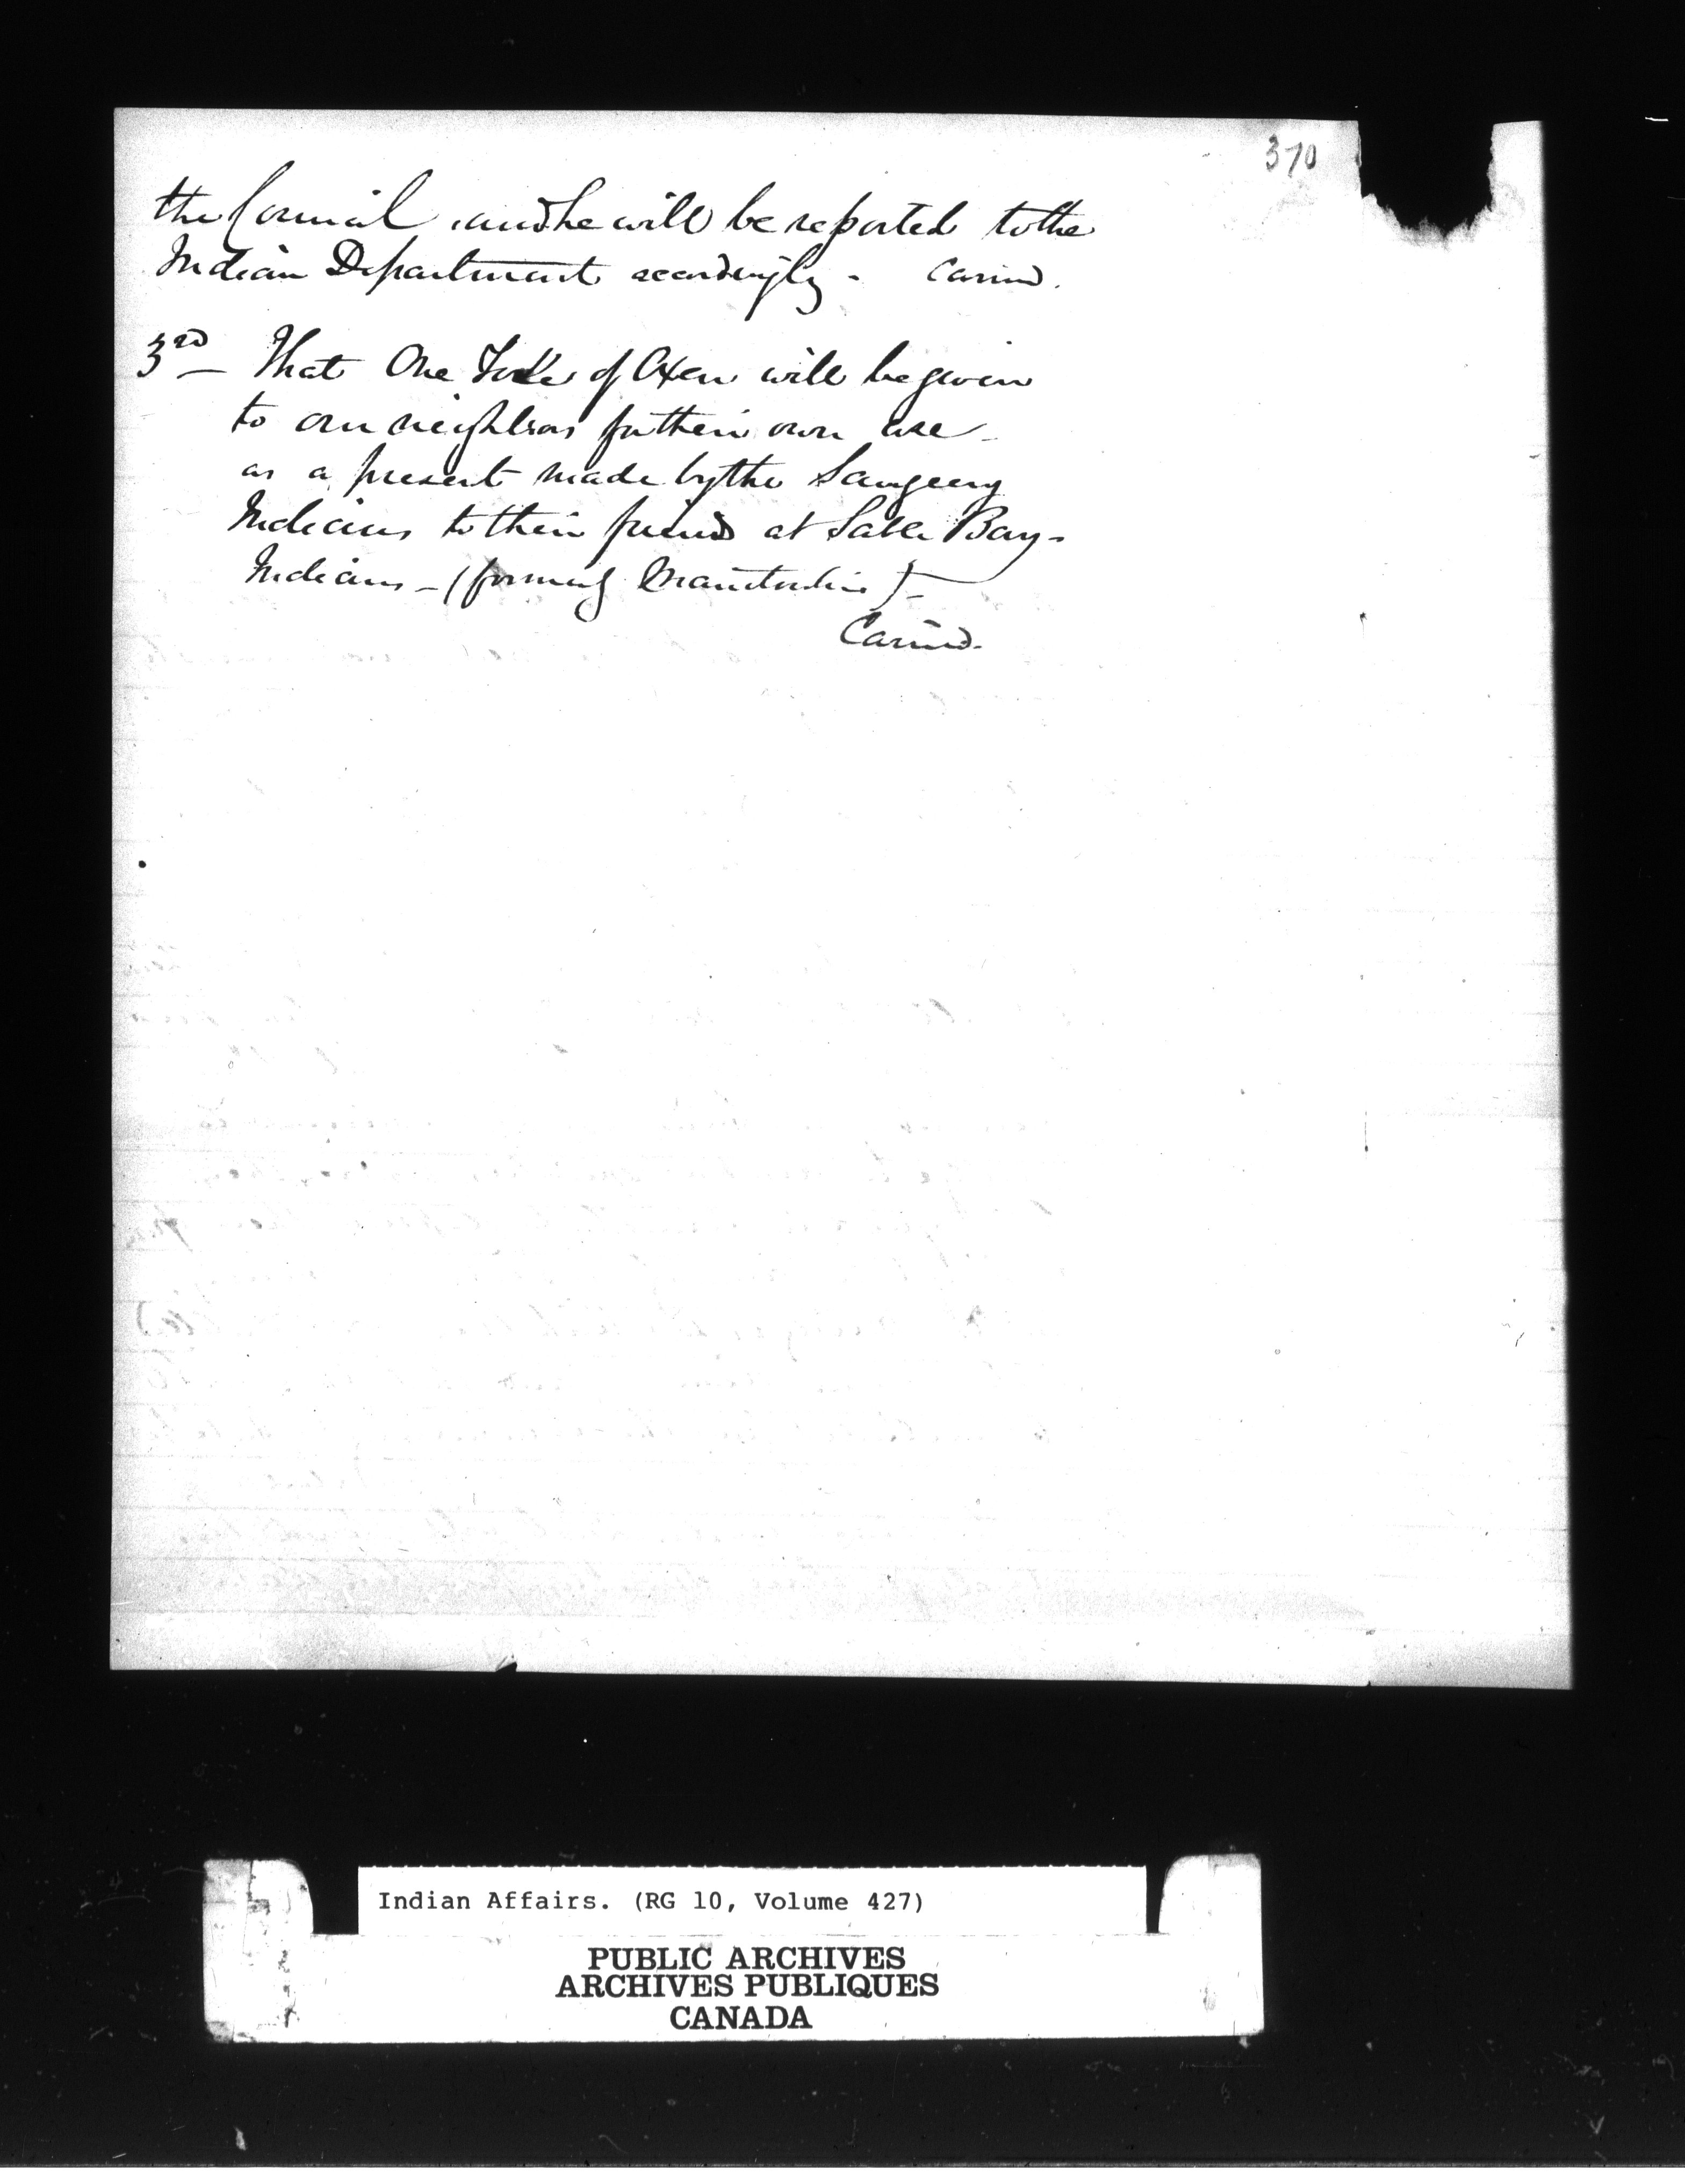 370
the Council, and he will be reported to the
Indian Department accordingly - Carried.
3rd - That One Yoke of Oxen will be given
to our neighbors for their own use -
as a present made by the Saugeeng
Indians to their friends at Sable Bay -
Indians - (formerly Manitoulin) -
Carried.
Indian Affairs. (RG 10, Volume 427)
PUBLIC ARCHIVES
ARCHIVES PUBLIQUES
CANADA